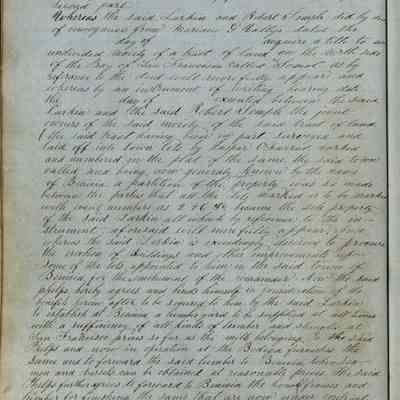 second part
Whereas the said Larkin and Robert Semple did by deed
of conveyance from Mariano G Vallejo dated the
day of acquire a title to an
undivided moiety of a tract of land on the North side
of the Bay of San Francisco called Soscol as by
reference to the deed will more fully appear and
whereas by an instrument of writing bearing date
the day of executed between the said
Larkin and the said Robert Semple the joint
owners of the said moiety of the said tract of land
(the said tract having been in part surveyed and
laid off into town lots by Jasper O'Farrell marked
and numbered in the plat of the same the said town
called and being now generally known by the name
of Benicia a partition of the property was so made
between the parties that all the lots marked or to be marked
with even numbers as 2 4 6 &c became the sole property
of the said Larkin all which by reference to the in-
strument aforesaid will more fully appear. And
whereas the said Larkin is exceedingly desirous to procure
the erection of Buildings and other improvements upon
some of the lots appertaining to him in the said Town of
Benicia for the enhancement of the remainder. Now the said
Phelps hereby agrees and binds himself in consideration of the
benefits herein after to be secured to him by the said Larkin
to establish at Benicia a lumber yard to be supplied at all times
with a sufficiency of all kinds of lumber and shingles at
San Francisco prices so far as the mill belonging to the said
Phelps and now in operation at the Bodega furnishes the
same and to forward the said lumber to Benicia whenever
men and vessels can be obtained at reasonable prices the said
Phelps further agrees to forward to Benicia the house frames and
lumber for finishing the same that are now under contract